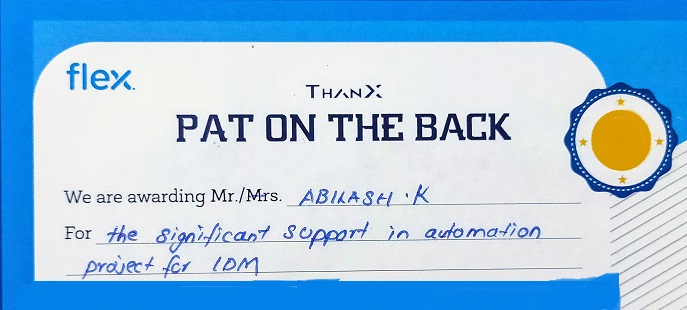 flex.
THANX
PAT ON THE BACK
We are awarding Mr./Mrs. ABILASH .K
For the significant support in automation
project for IDM